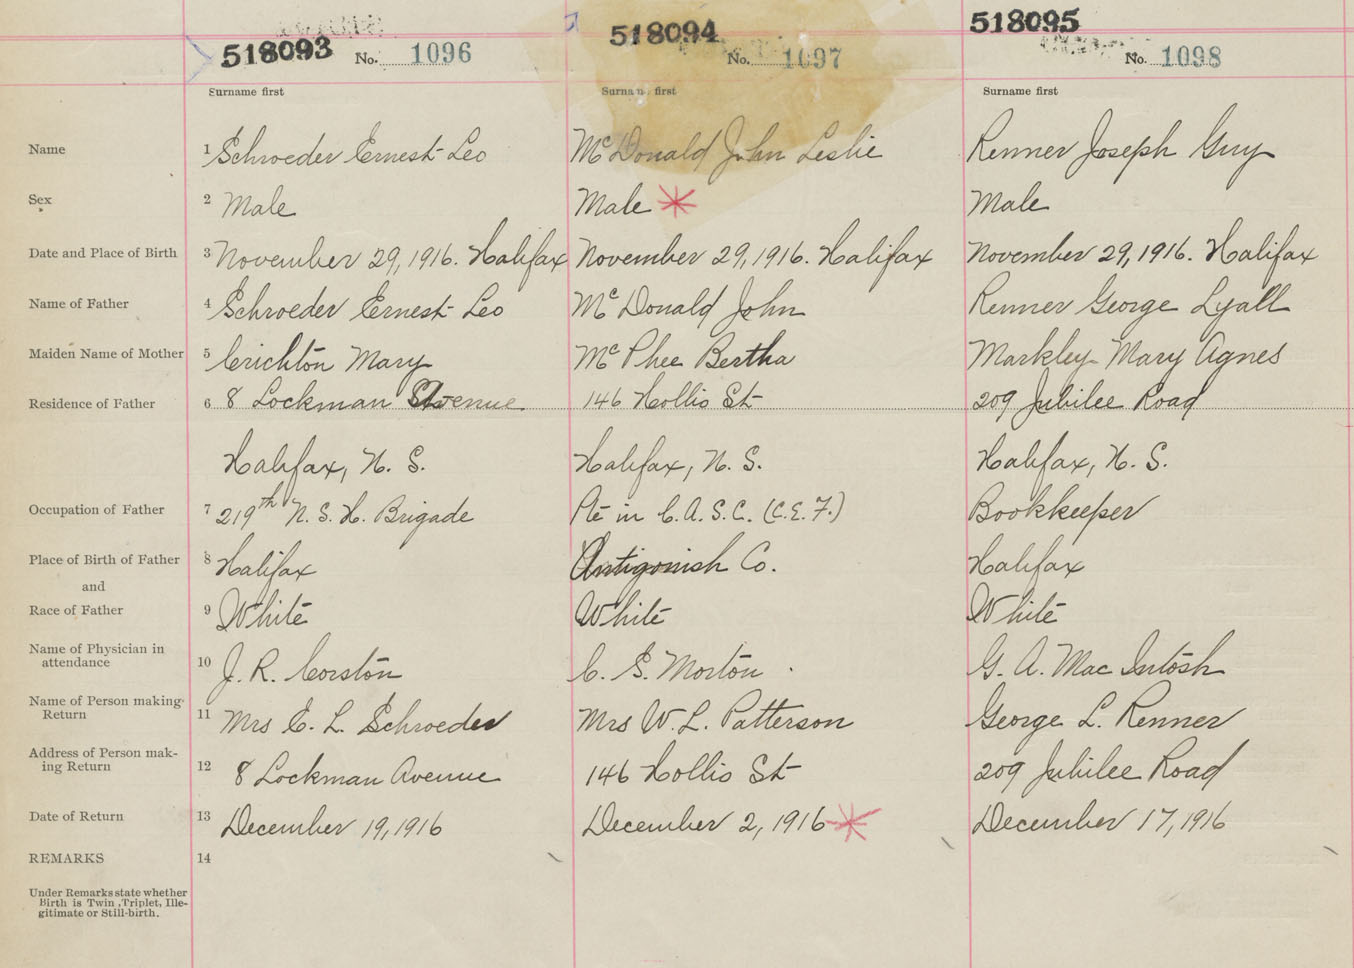 518093 No. 1096 518094 No. 1097 518095 No. 1098
Surname first Surname first Surname first
Name 1 Schroeder Ernest Leo McDonald John Leslie Renner Joseph Guy
Sex 2 Male Male Male
Date and Place of Birth 3 November 29, 1916. Halifax November 29, 1916. Halifax November 29, 1916. Halifax
Name of Father 4 Schroeder Ernest Leo McDonald John Renner George Lyall
Maiden Name of Mother 5 Crichton Mary McPhee Bertha Markley Mary Agnes
Residence of Father 6 8 Lockman Avenue 146 Hollis St 209 Jubilee Road
Halifax, N. S. Halifax, N. S. Halifax, N. S.
Occupation of Father 7 219th N. S. H. Brigade Pte in C. A. S. C. (C. E. F.) Bookkeeper
Place of Birth of Father 8 Halifax Antigonish Co. Halifax
and
Race of Father 9 White White White
Name of Physician in
attendance 10 J. R. Corston C. S. Morton G. A. MacIntosh
Name of Person making
Return 11 Mrs E. L. Schroeder Mrs W. L. Patterson George L. Renner
Address of Person mak-
ing Return 12 8 Lockman Avenue 146 Hollis St 209 Jubilee Road
Date of Return 13 December 19, 1916 December 2, 1916 December 17, 1916
REMARKS 14
Under Remarks state whether
Birth is Twin, Triplet, Ille-
gitimate or Still-birth.